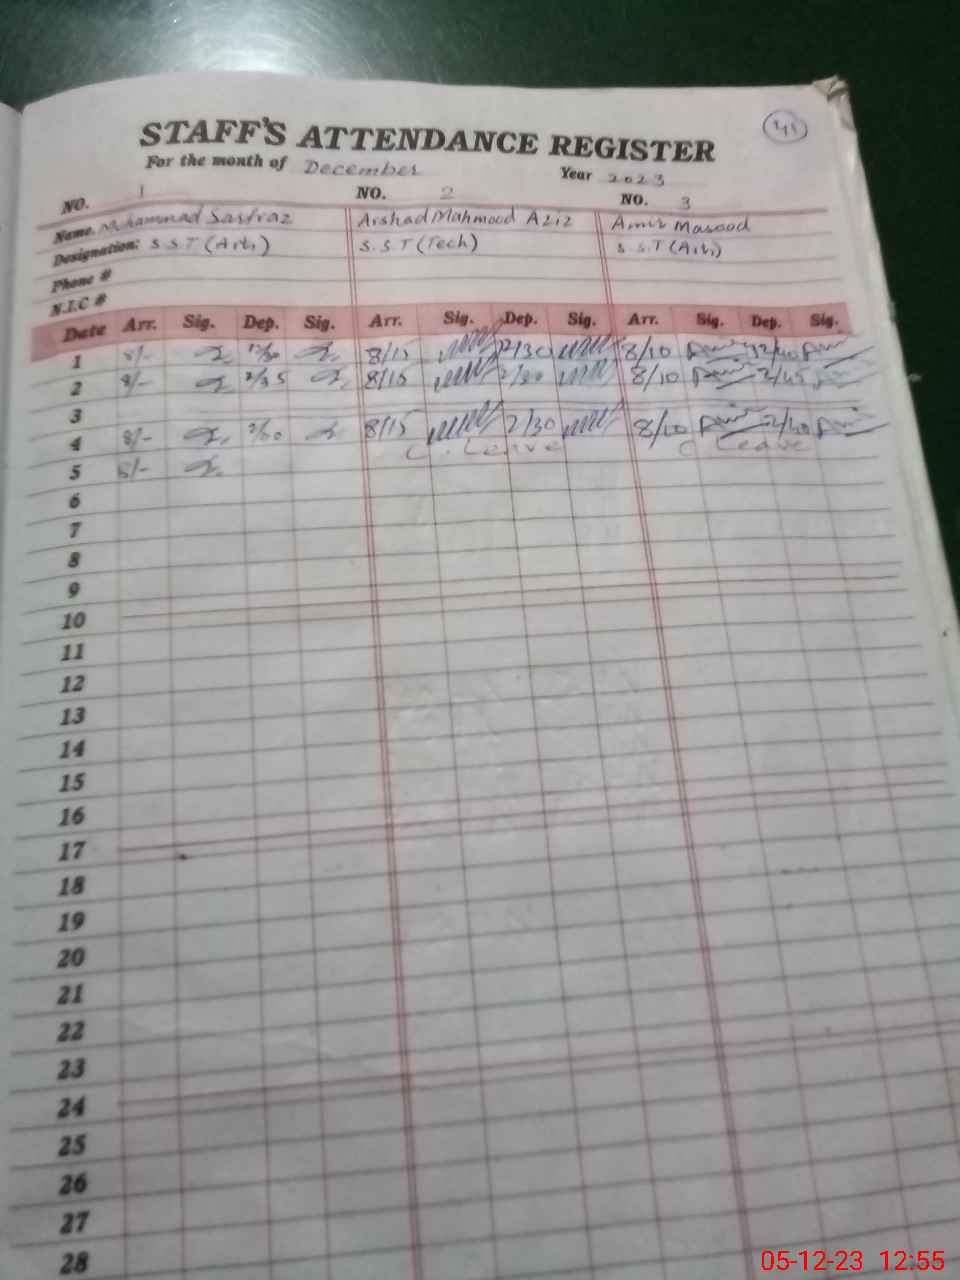 141
STAFF'S ATTENDANCE REGISTER
For the month of December Year 2023
NO. 1 NO. 2 NO. 3
Name. Muhammad Sarfraz Arshad Mahmood Aziz Amir Masood
Designation: S.S.T (Arts) S.S.T (Tech) S.S.T (Arts)
Phone #
N.I.C #
Date Arr. Sig. Dep. Sig. Arr. Sig. Dep. Sig. Arr. Sig. Dep. Sig.
1 8/- 12/30 8/15 12/30 8/10 12/40
2 8/- 2/35 8/15 2/30 8/10 2/45
3
4 8/- 2/30 8/15 2/30 8/10 2/40
5 8/- C. Leave C Leave
6
7
8
9
10
11
12
13
14
15
16
17
18
19
20
21
22
23
24
25
26
27
28
05-12-23 12:55